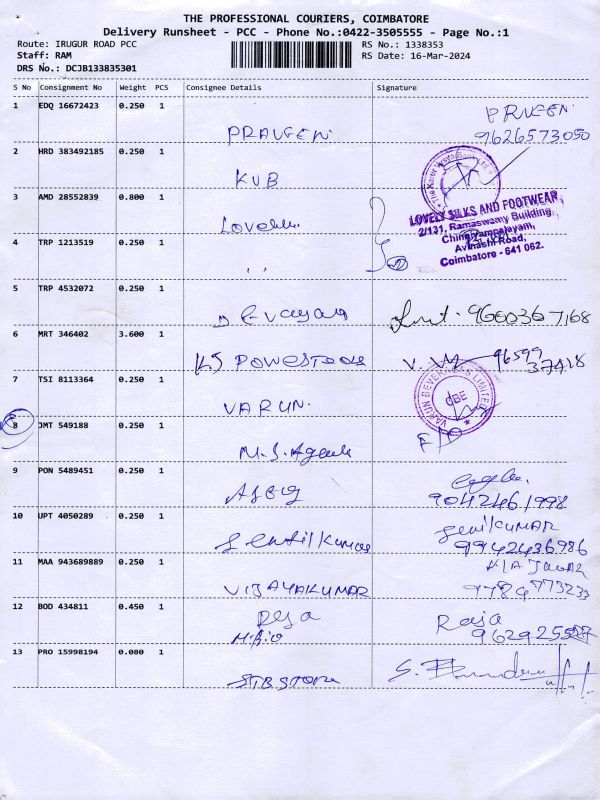 THE PROFESSIONAL COURIERS, COIMBATORE
Delivery Runsheet - PCC - Phone No.:0422-3505555 - Page No.:1
Route: IRUGUR ROAD PCC
RS No.: 1338353
Staff: RAM
RS Date: 16-Mar-2024
DRS No.: DCJB133835301
S No Consignment No Weight PCS Consignee Details Signature
1 EDQ 16672423 0.250 1
PRAVEEN
PRVEEN
9626573050
2 HRD 383492185 0.250 1
KVB
3 AMD 28552839 0.800 1
LOVELY SILKS AND FOOTWEAR
2/131, Ramaswamy Building,
Chinniyampalayam,
Avinashi Road,
Coimbatore - 641 062.
4 TRP 1213519 0.250 1
" 
5 TRP 4532072 0.250 1
9600367168
6 MRT 346402 3.600 1
KS POWESTOOLS
96599
37418
7 TSI 8113364 0.250 1
VARUN.
VARUN BEVERAGES LIMITED
CBE
8 JMT 549188 0.250 1
M.S. Agents
9 PON 5489451 0.250 1
9042461998
10 UPT 4050289 0.250 1
Senthil Kumar
SenilKUMAR
9942436986
11 MAA 943689889 0.250 1
VIJAYAKUMAR
9789773233
12 BOD 434811 0.450 1
Raja
13 PRO 15998194 0.080 1
STB STORE